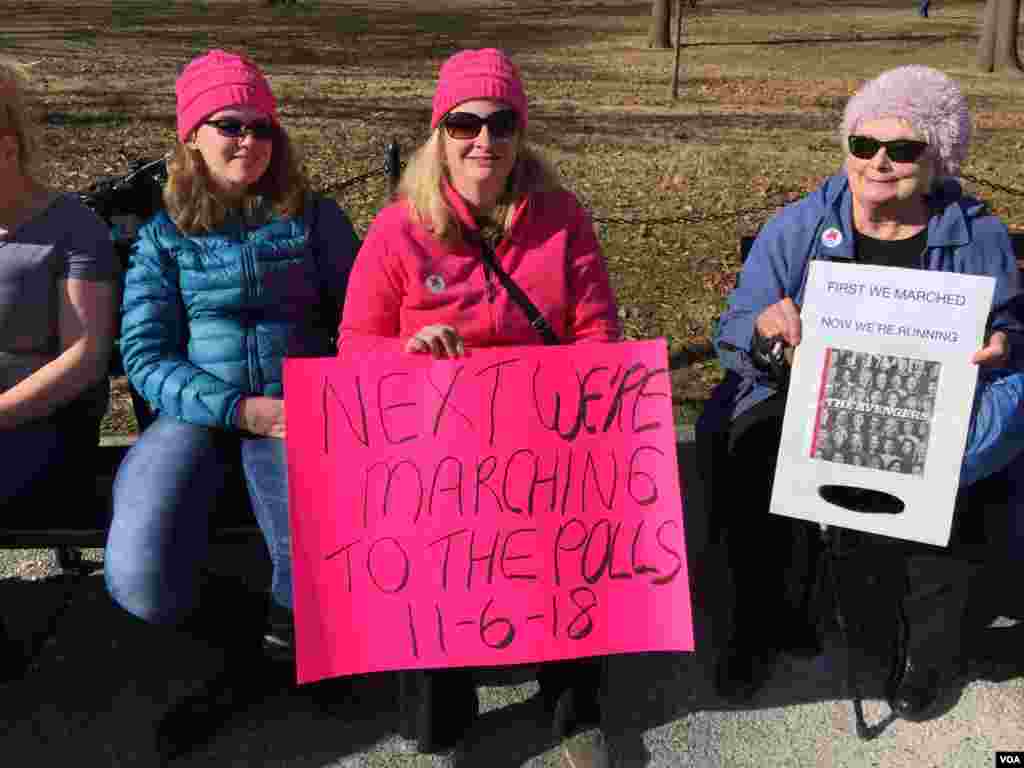 NEXT WE'RE
MARCHING
TO THE POLLS
11-6-18
FIRST WE MARCHED
NOW WE'RE RUNNING
THE AVENGERS
VOA